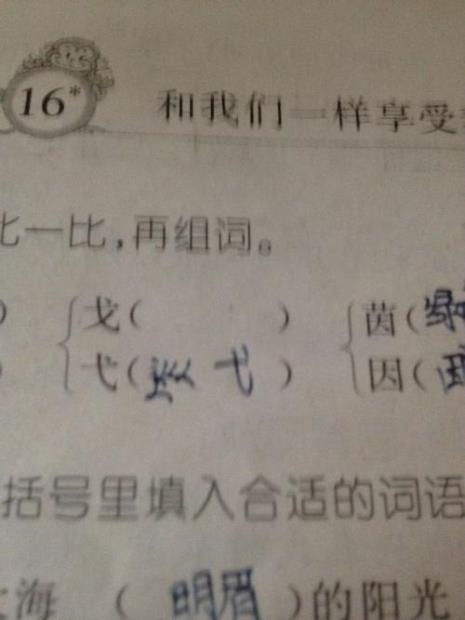 16* 和我们一样享受
比一比,再组词。
) 戈( ) 茵(绿
) 弋( 弋 ) 因(
括号里填入合适的词语
海 (明眉)的阳光